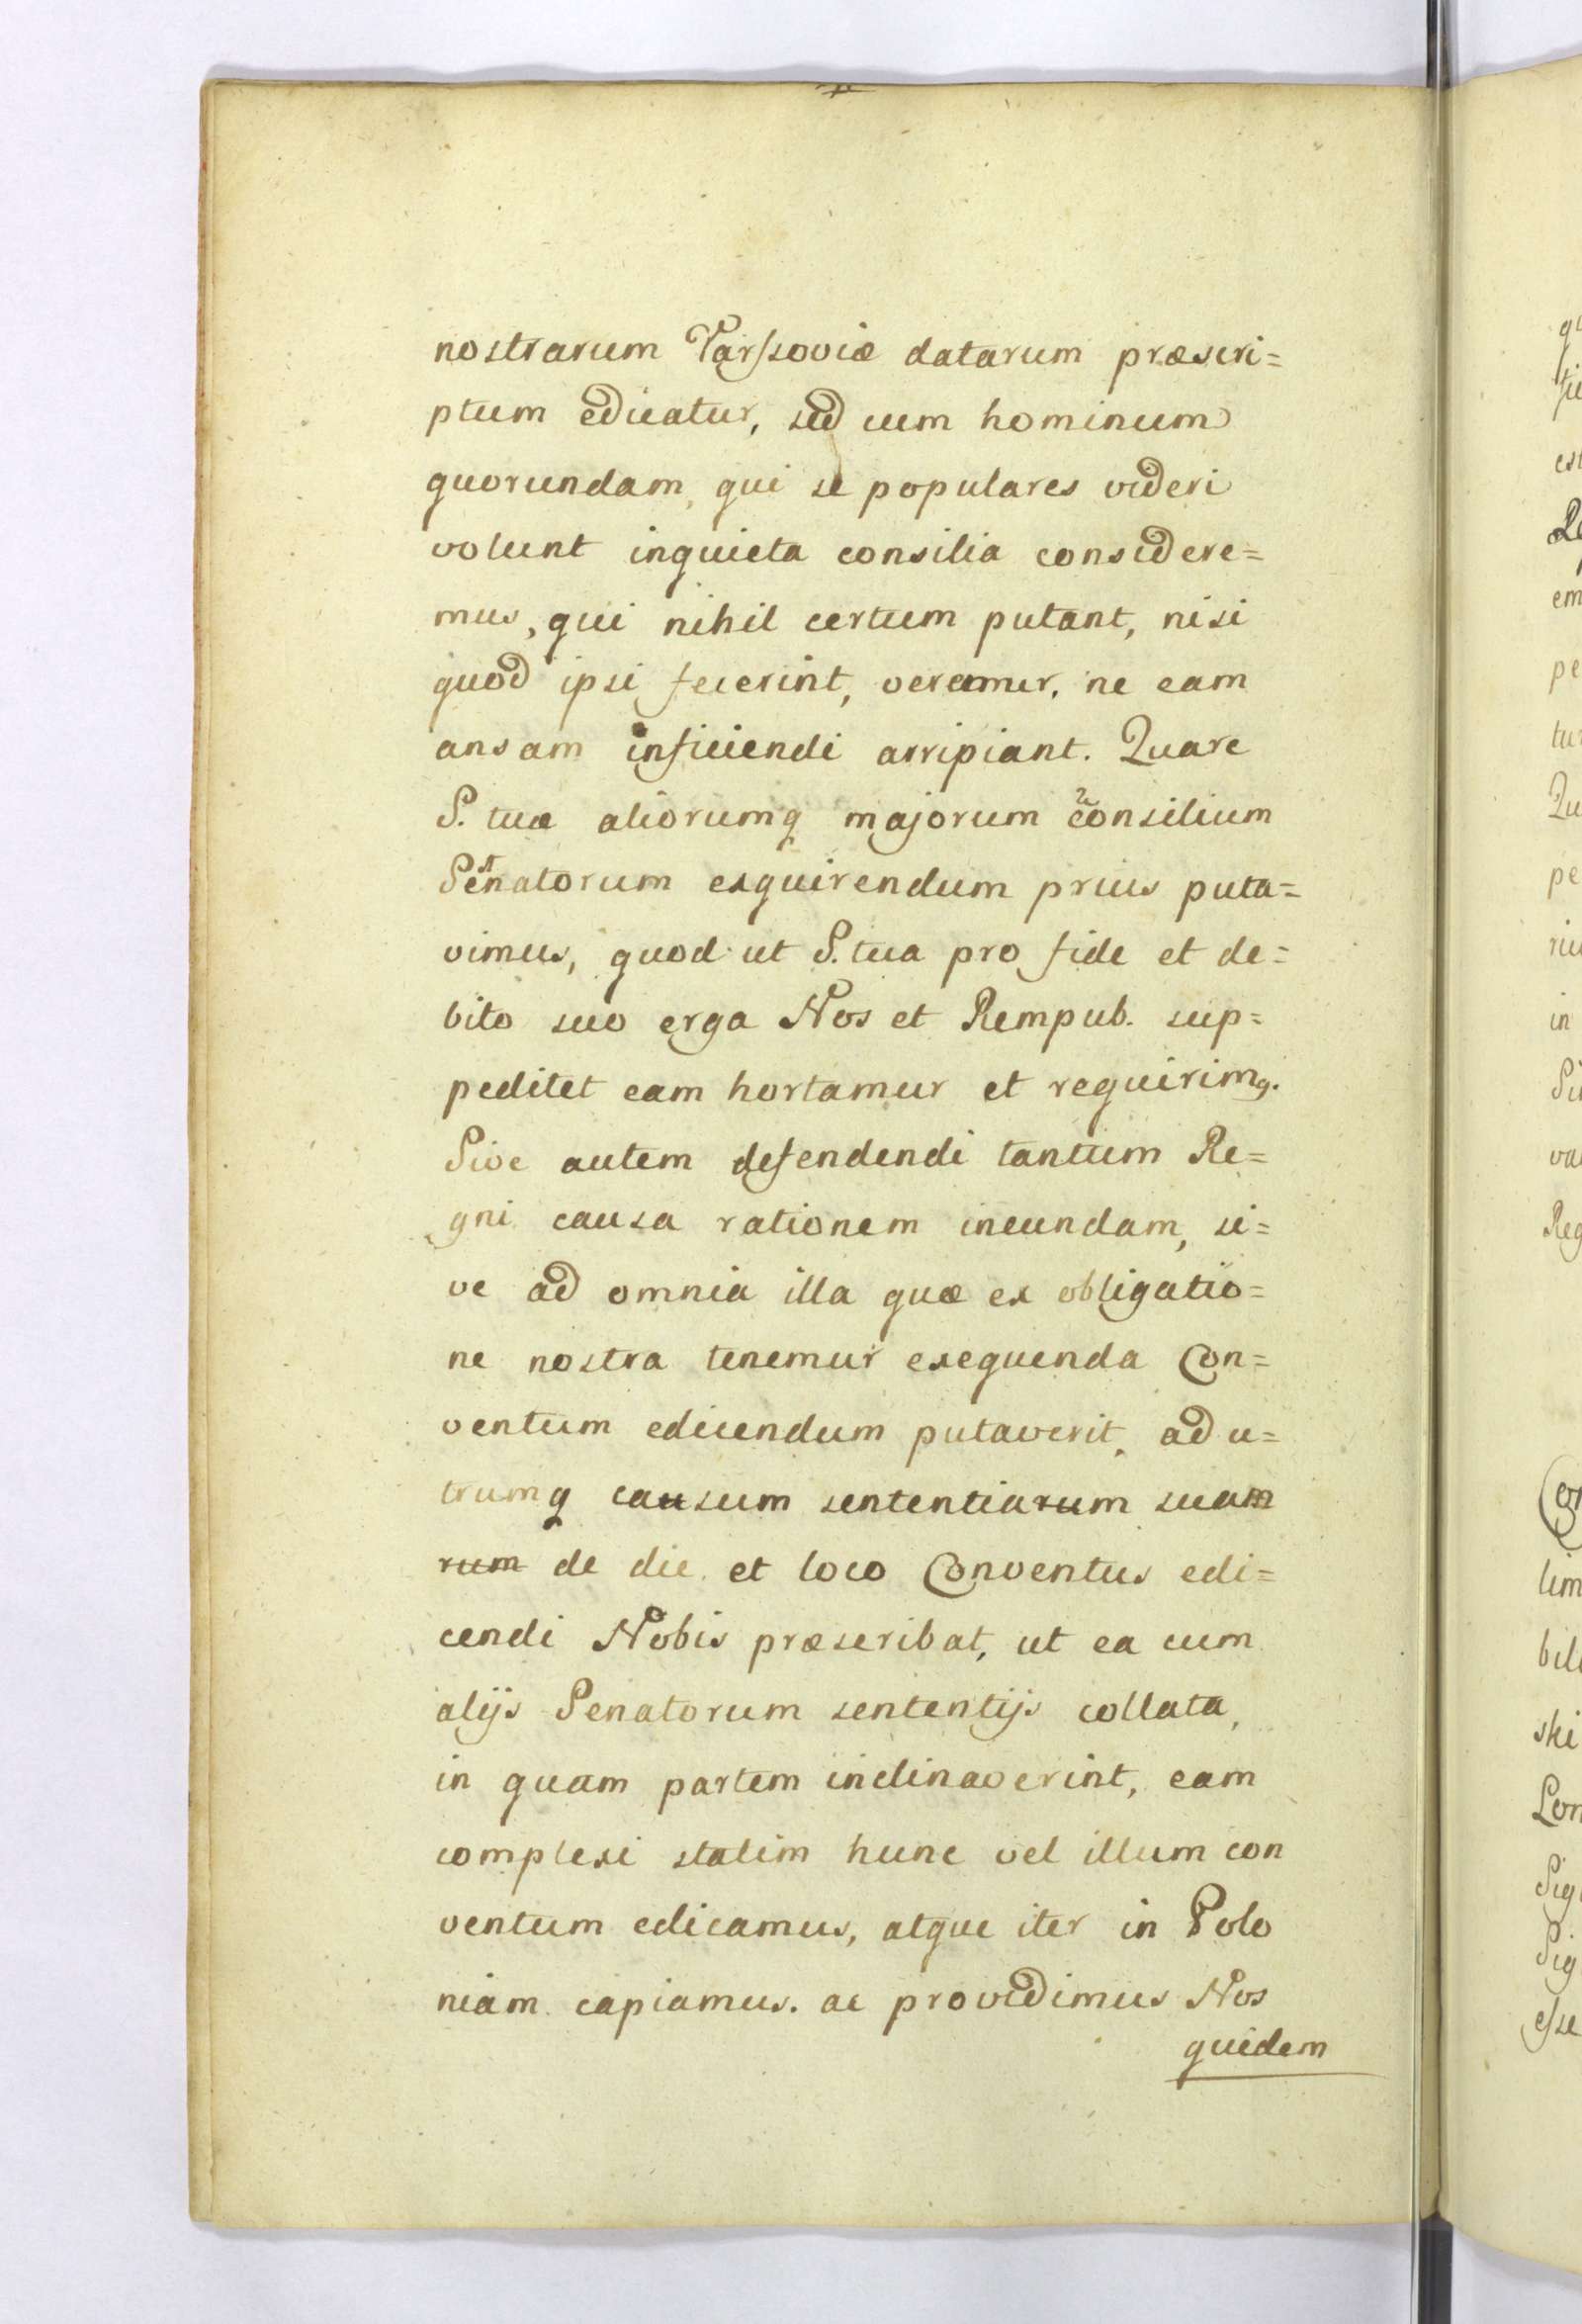 nostrarum Varſsoviæ datarum præscri=
ptum edicatur, sed cum hominum
quorundam, qui se populares videri
volunt inquieta consilia considere=
mus, qui nihil certum putant, nisi
quod ipsi fecerint, veremur, ne eam
ansam inficiendi arripiant. Quare
S. tuæ aliorumq majorum 2consilium
1Senatorum exquirendum prius puta=
vimus, quod ut S. tua pro fide et de=
bito suo erga Nos et Rempub. sup=
peditet eam hortamur et requirimq.
Sive autem defendendi tantum Re=
gni causa rationem ineundam, si=
ve ad omnia illa quæ ex obligatio=
ne nostra tenemur exequenda Con=
ventum edicendum putaverit, ad u=
trumq causum sententiarum suam
rum de die et loco Conventus edi=
cendi Nobis præscribat, ut ea cum
alijs Senatorum sententijs collata,
in quam partem inclinaverint, eam
complexi statim hunc vel illum con
ventum edicamus, atque iter in Polo
niam capiamus. ac providimus Nos
quidem